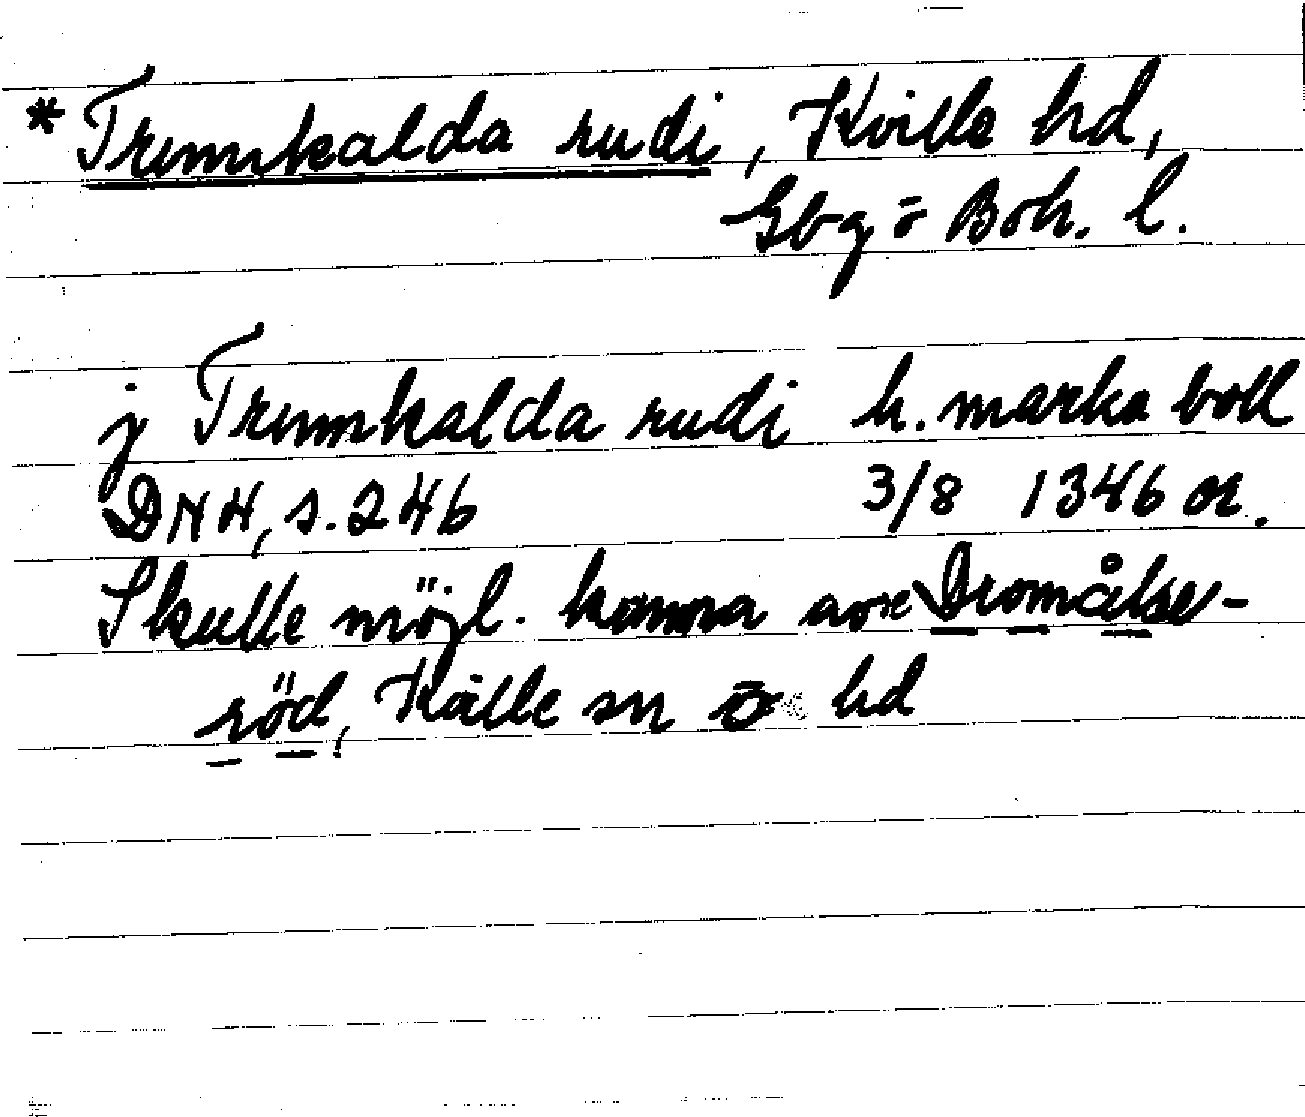 *Trumkalda rudi, Kville hd,
Gbg o Boh. l.
j Trumkalda rudi h. marka boll
DN 4, s. 246 3/8 1346 or.
Skulle möjl. komma avse Dromålse-
röd, Källe sn o hd